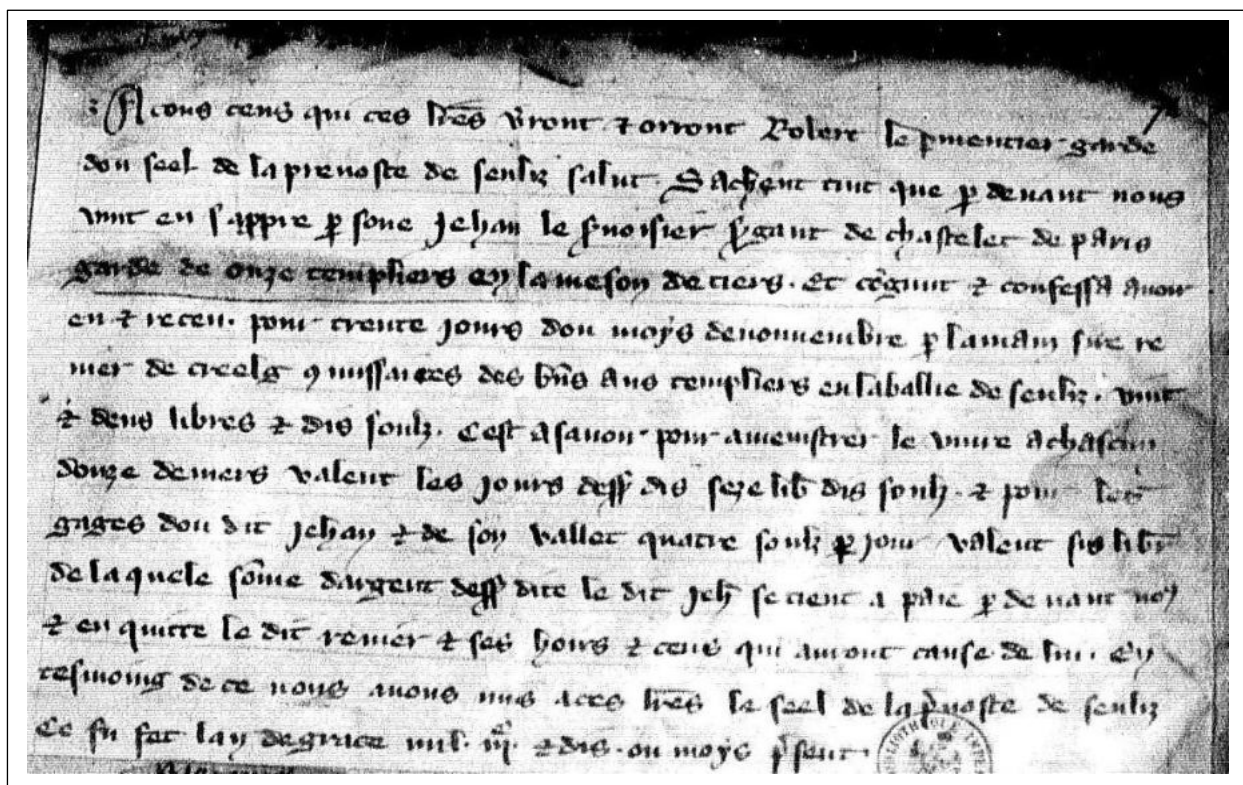 A tous ceus qui ces lrẽs vrront ⁊ orront Robert le pmentier garde
dou seel de la prevoste de senliz salut. Sachent tuit que p devant nous
vint en sa ppre psone Jehan le servoisier sgant de chastelet de paris
garde de onze templiers en la meson de tiers. Et cõgnut ⁊ confessa avoir
eu ⁊ receu. pour trente jours dou moys de nouvembre p la main sire re
nier de creelg 9missaires des bñs aus templiers en la ballie de senliz. vint
⁊ deus libres ⁊ dis soulz. Cest asavoir pour amenistrer le vivre a chascun
douze deniers valent les jours dess dis seze lib dis soulz. ⁊ pour les
gages dou dit Jehan ⁊ de son vallet quatre soulz p jour valent sis libr
de la quele sõme dargent dess dite le dit Jeh se tient a paie p devant no9
⁊ en quitte le dit renier ⁊ ses hoirs ⁊ ceus qui auront cause de lui. En
tesmoing de ce nous avons mis a ces lrẽs le seel de la pvoste de senliz
Ce fu fet lan de grace mil. iijc. ⁊ dis. ou moys psent.